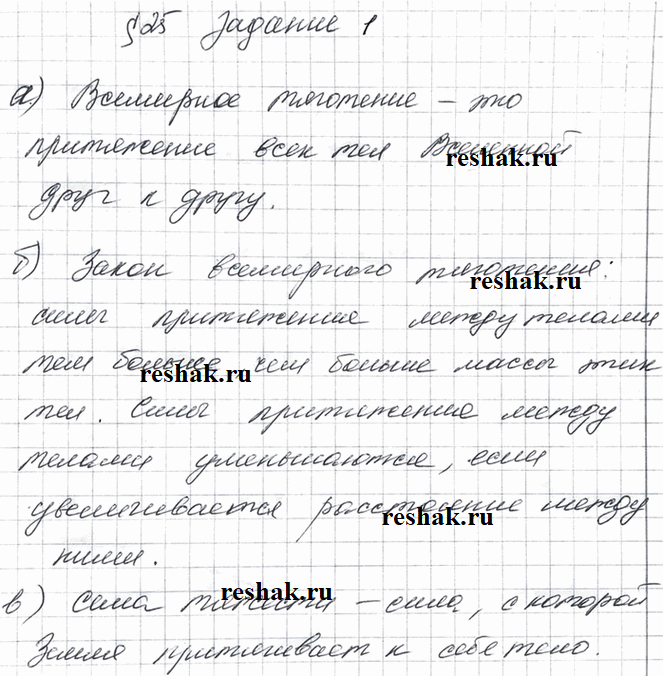 § 25 Задание 1
а) Всемирное тяготение – это
притяжение всех тел Вселенной
reshak.ru
друг к другу.
б) Закон всемирного тяготения:
reshak.ru
силы притяжения между телами
тем больше чем больше массы этих
reshak.ru
тел. Силы притяжения между
телами уменьшаются, если
увеличивается расстояние между
reshak.ru
ними.
reshak.ru
в) Сила тяжести – сила, с которой
Земля притягивает к себе тело.